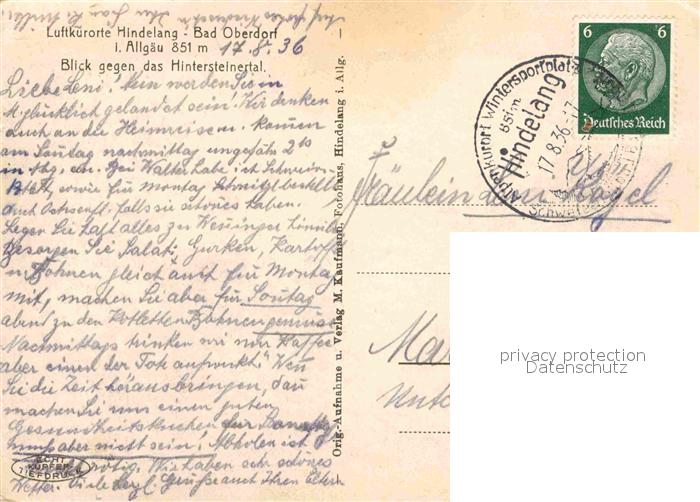 Luftkurorte Hindelang - Bad Oberdorf
i. Allgäu 851 m 17.8.36
Blick gegen das Hintersteinertal.
Liebe Leni! Nun werden Sie in
M. glücklich gelandet sein. Wir denken
auch an die Heimreise u. kommen
am Sonntag nachmittag ungefähr
an. Bei Walter habe ich
sowie für Montag Schnitzl bestellt
auch Ochsenfl. falls sie schönes haben.
Legen Sie halt alles zu
Besorgen Sie Salat, Gurken, Kartoff.
u. Bohnen gleich auch für Montag
mit, machen Sie aber für Sonntag
abend zu den Kotletten Bohnengemüse
Nachmittags trinken wir nur Kaffee
aber einen der Tote aufweckt! Wenn
Sie die Zeit herausbringen, dan
machen Sie uns einen guten
Gesundheitskuchen
muss aber nicht sein! Abholen ist
nötig. Wir haben sehr schönes
Wetter. Viele herzl. Grüsse auch Ihren Eltern
ECHT
KUPFER-
TIEFDRUCK
Orig.-Aufnahme u. Verlag M. Kaufmann, Fotohaus, Hindelang i. Allg.
6 6
Deutsches Reich
Alpin. Kurort Wintersportplatz
851 m
Hindelang
17.8.36.-17
Fräulein
privacy protection
Datenschutz